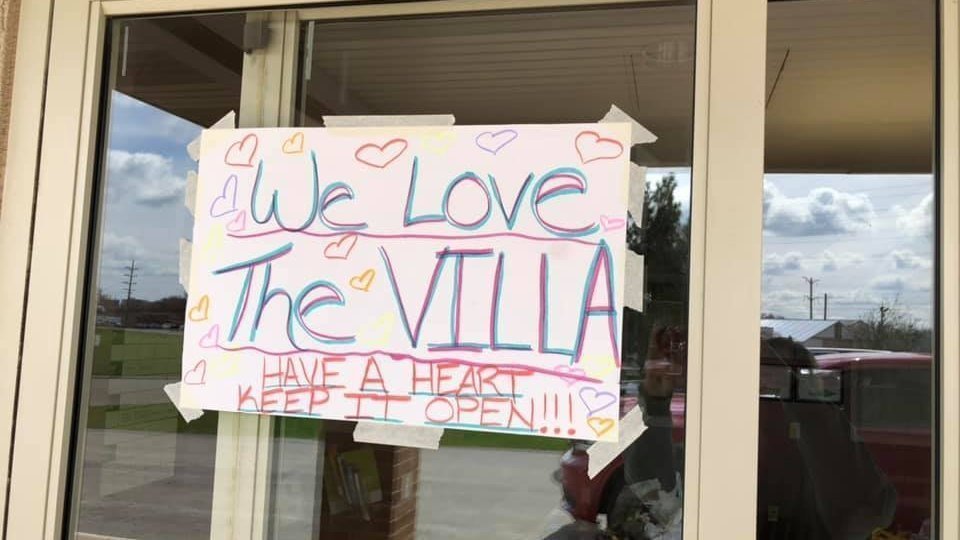 We Love
The VILLA
HAVE A HEART
KEEP IT OPEN!!!